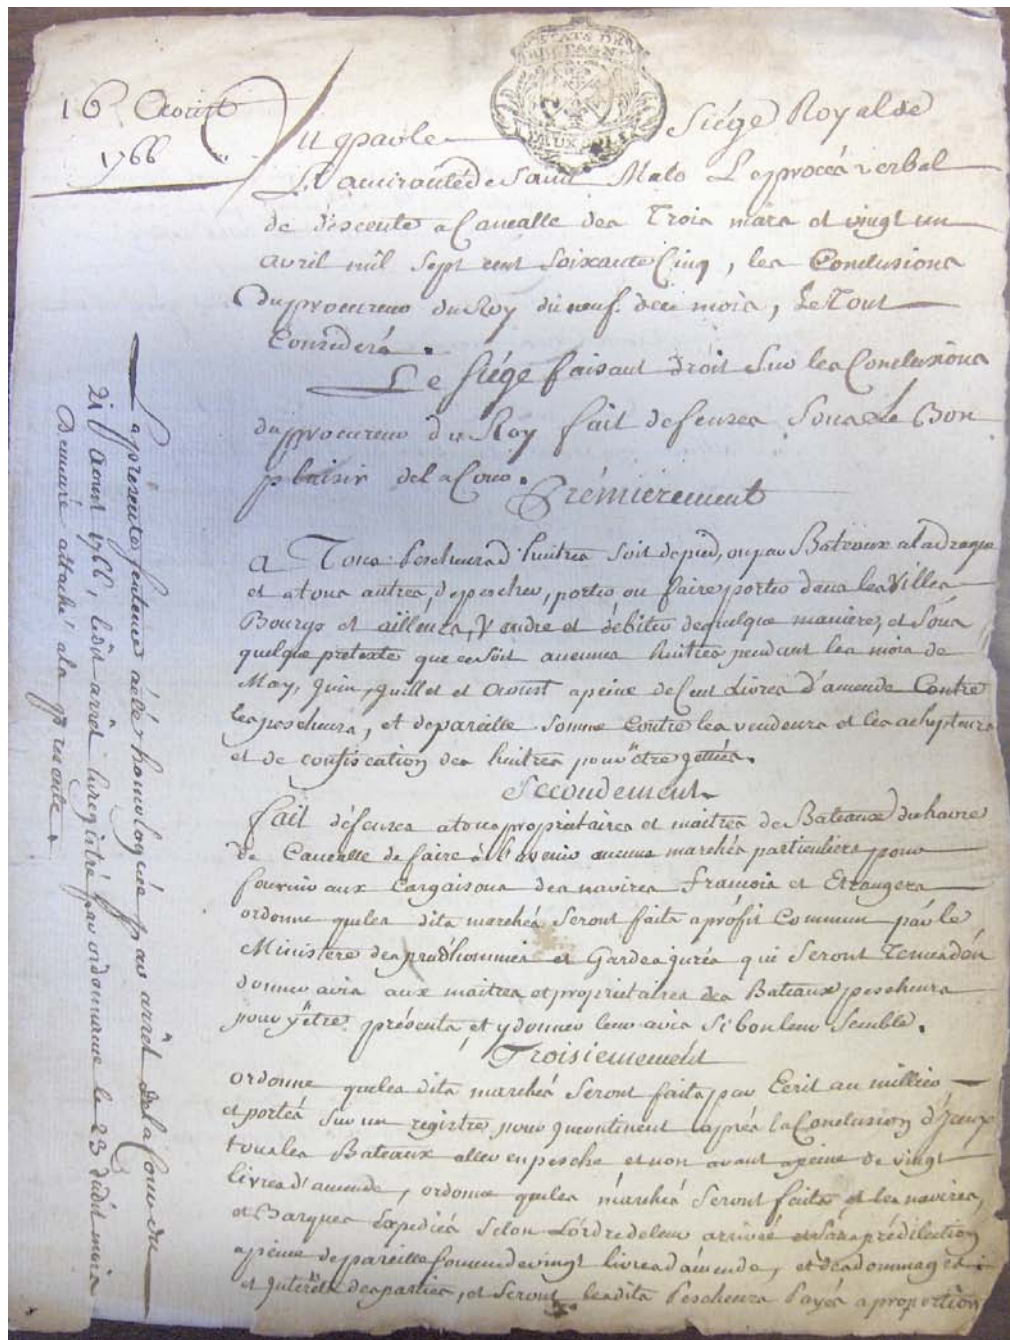 16 Aoust
1766
ETATS DE
BRETAGNE
Vu par le Siége Royal de
L'amirauté de Saint Malo Le procés verbal
de déscente a Cancalle des Trois mars et vingt un
avril mil sept cent soixante Cinq, les Conclusions
du procureur du Roy du neuf de ce mois, Le Tout
Considéré.
Le siége faisant droit sur les Conclusions
du procureur du Roy fait defenses sous Le Bon
plaisir de la Cour. Prémierement
A Tous Pescheurs d'huitres soit de pied, ou par Bateaux a la drague
et a tous autres, de pescher, porter ou faire porter dans les Villes
Bourgs et ailleurs, Vendre et débiter de quelque maniere, et sous
quelque pretexte que ce soit aucunes huitres pendant les mois de
May, Juin, Juillet et Aoust a peine de Cent Livres d'amende Contre
les pescheurs, et de pareille somme Contre les vendeurs et les achepteurs
et de confiscation des huitres pour être jettées.
Secondement
fait défenses a tous propriétaires et maitres de Bateaux du havre
de Cancalle de faire à l'avenir aucuns marchés particuliers pour
fournir aux Cargaisons des navires francois et Etrangers
ordonne que les dits marchés seront faits a profit Commun par le
Ministere des prud'hommes et Gardes jurés qui seront Tenus d'en
donner avis aux maitres et propriétaires des Bateaux pescheurs
pour y être présents, et y donner leur avis si bon leur semble.
Troisiemement
ordonne que les dits marchés seront faits par Ecrit au millier
et portés sur un registre pour incontinent aprés la Conclusion d'iceux
tous les Bateaux aller en pesche et non avant a peine de vingt
livres d'amende, ordonne que les marchés seront faits et les navires,
et Barques Expediés selon L'ordre de leur arrivée et sans prédilection
a peine de pareille somme de vingt livres d'amende, et des dommages
et Interets des parties, et seront les dits Pescheurs Payés a proportion
La presente sentence a été homologuée par arrêt de la Cour du
21 Aoust 1766, ledit arrêt enregistré par ordonnance le 23 dudit mois
Demeuré attaché a la presente.